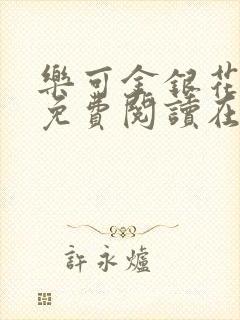 樂可金銀花
免費閱讀在
許永爐